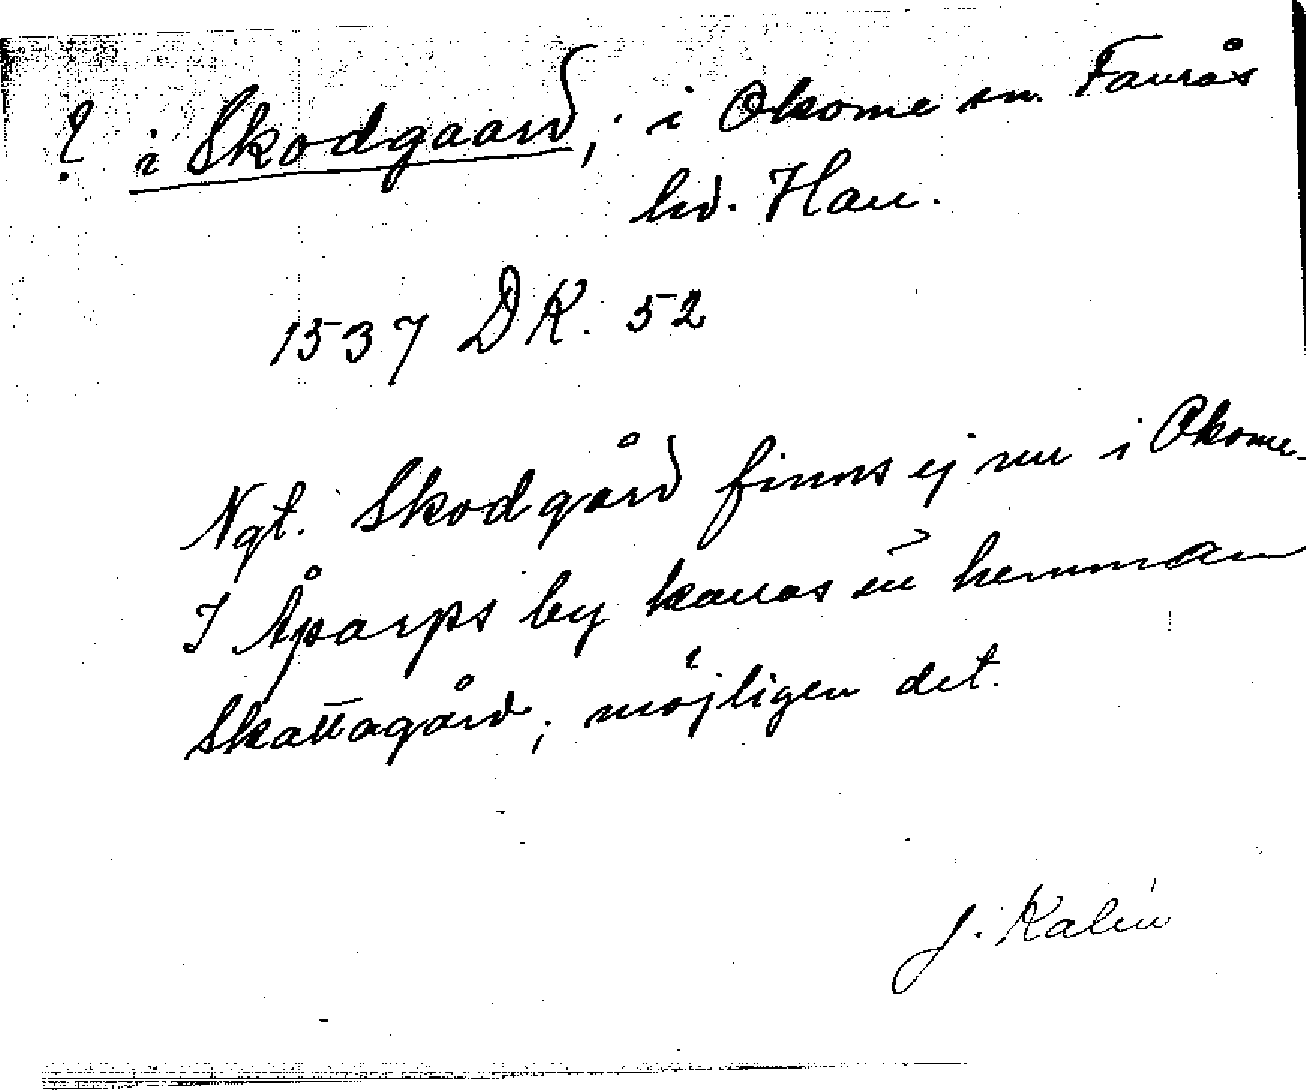 ? i Skodgaard; i Okome sn. Faurås
hd. Hall.
1537 DK. 52
Ngt. Skodgård finns ej nu i Okome.
I Åparps by kallas ett hemman
Skattagård; möjligen det.
J. Kalén